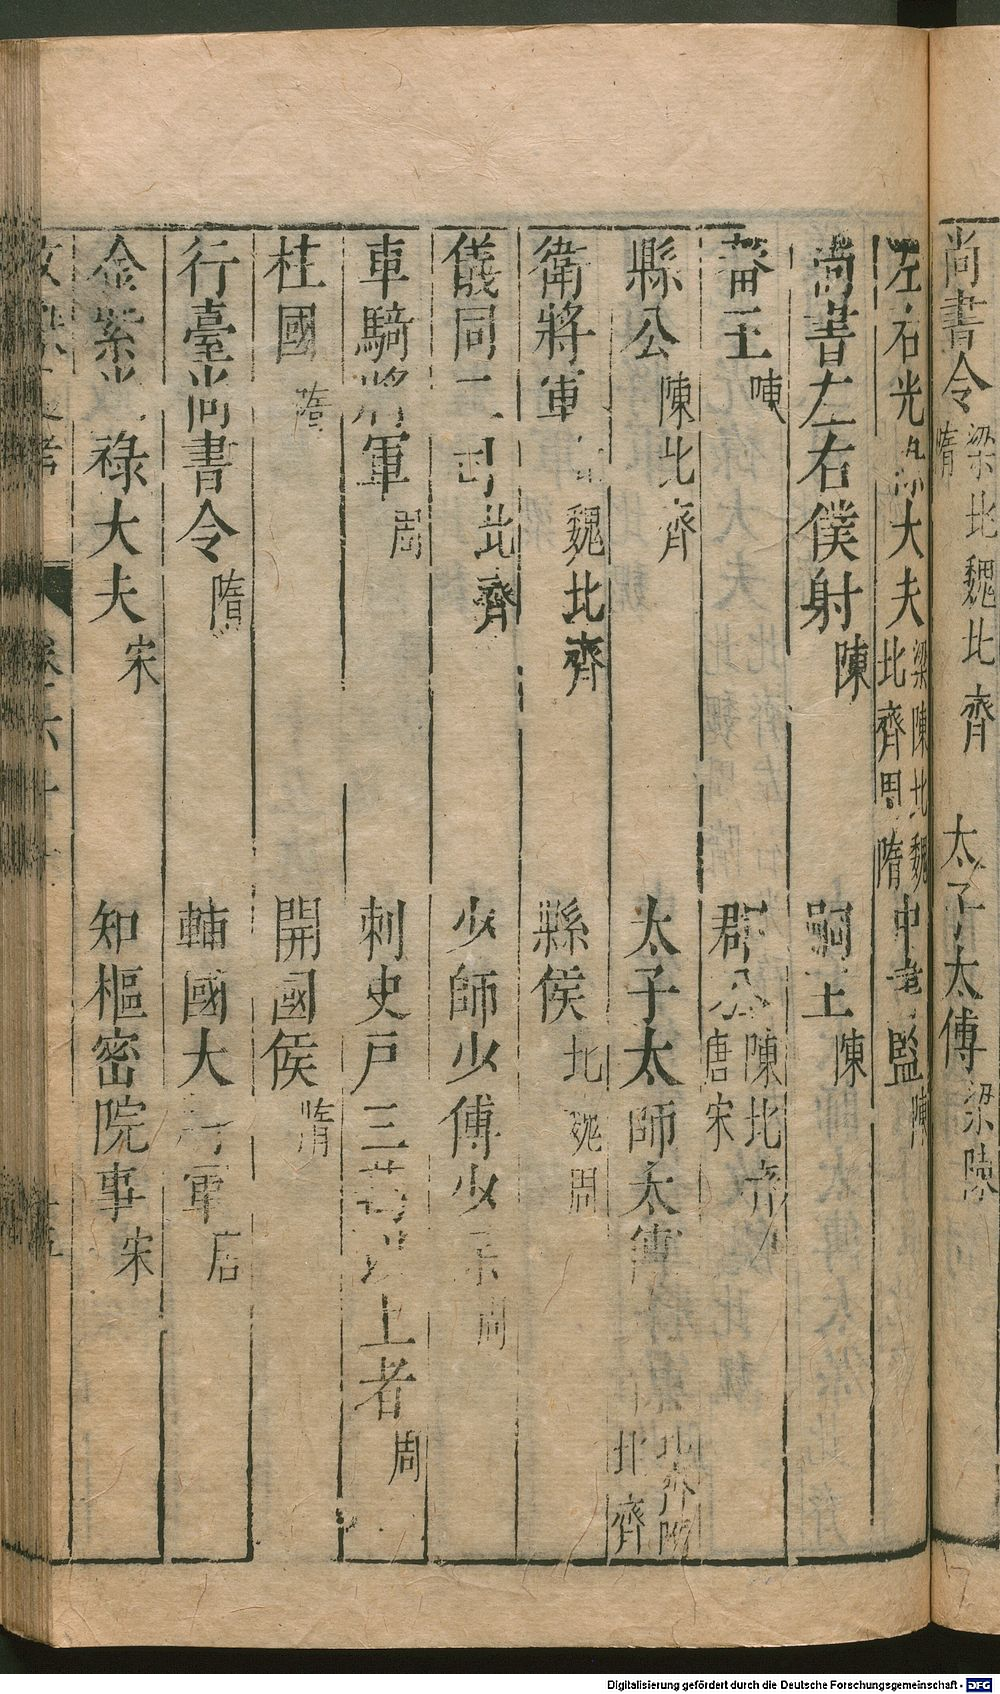 尚書令 梁北魏北齊隋 太子太傅 梁陳
左右光祿大夫 梁陳北魏北齊周隋 中書監 陳
尚書左右僕射 陳 嗣王 陳
藩王 陳 郡公 陳北齊唐宋
縣公 陳北齊 太子太師太傅 北齊
衛將軍 魏北齊 縣侯 北魏周
儀同三司 北齊 少師少傅少 周
車騎將軍 周 刺史戸三萬以上者 周
柱國 隋 開國侯 隋
行臺尚書令 隋 輔國大將軍 后
金紫光祿大夫 宋 知樞密院事 宋
卷六十
十五
Digitalisierung gefördert durch die Deutsche Forschungsgemeinschaft - DFG